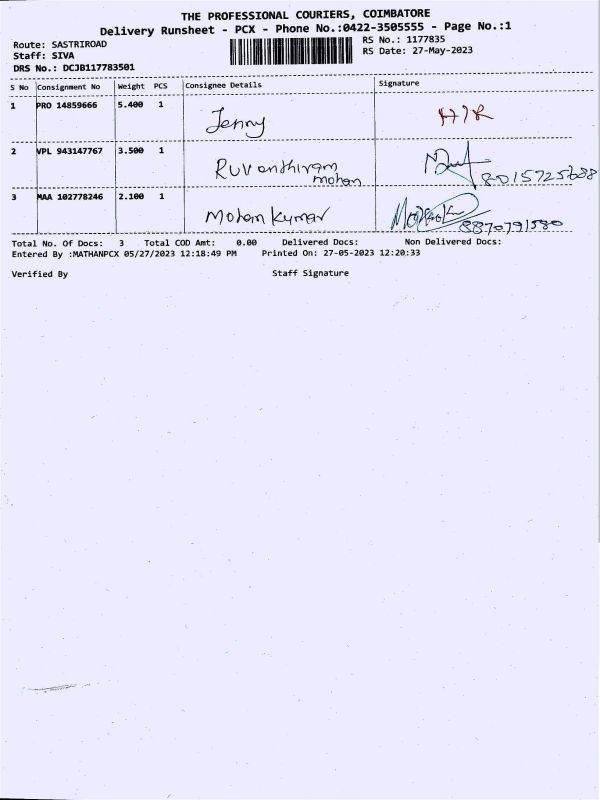 THE PROFESSIONAL COURIERS, COIMBATORE
Delivery Runsheet - PCX - Phone No.:0422-3505555 - Page No.:1
Route: SASTRIROAD
Staff: SIVA
DRS No.: DCJB117783501
RS No.: 1177835
RS Date: 27-May-2023
S No Consignment No Weight PCS Consignee Details Signature
1 PRO 14859666 5.400 1 Jenny
2 VPL 943147767 3.500 1 Ruvanthiram mohan 8015725688
3 MAA 102778246 2.100 1 Mohan Kumar 8870791580
Total No. Of Docs: 3 Total COD Amt: 0.00 Delivered Docs: Non Delivered Docs:
Entered By :MATHANPCX 05/27/2023 12:18:49 PM Printed On: 27-05-2023 12:20:33
Verified By Staff Signature